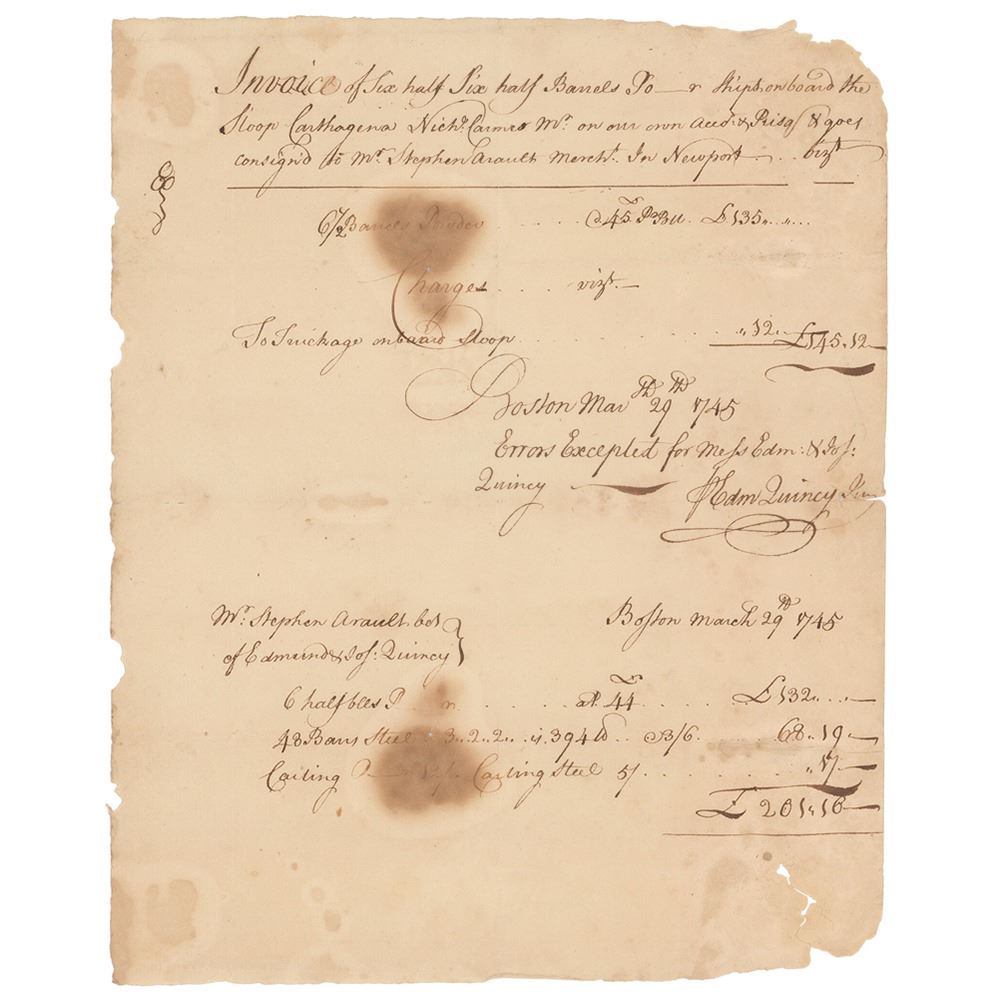 Invoice of Six half Six half Barrels Po—r Shipt onboard the
Sloop Carthagena Nichs. Mr. on our own Accot. & Risq & goes
consign'd to Mr. Stephen Arault Mercht. In Newport . . vizt
6/2 Barrels Powder . . . . @ 45 £135 . . . .
Charges . . . . vizt.—
To Truckage onboard Sloop . . . . . . " 12. £145.12
Boston Mar 29th 1745
Errors Excepted for Mess Edm: & Jos:
Quincy — Edm Quincy Jun
Mr. Stephen Arault bot Boston March 29th 1745
of Edmund & Jos: Quincy
6 half bles P n. . . . . at 44 . . . . £132 . . . —
48 Bars Steel 3..2..2.. 394 lb . . @ 3/6. . . 68..19—
Casting Steel 5/ . . . . . . ..17—
£ 201..16—